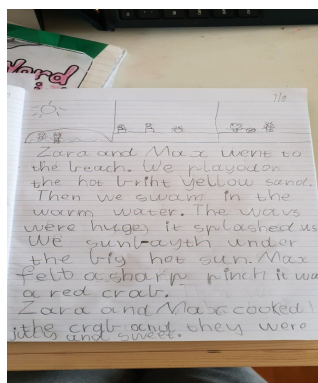 Word
7/8
Zara and Max went to
the beach. We playod on
the hot brint yellow sand.
Then we swam in the
warm water. The wavs
were huge, it splashed us
We sunbayth under
the big hot sun. Max
felt a sharp pinch it wa
a red crab.
Zara and Max cooked
the crab and they were
and sweet.